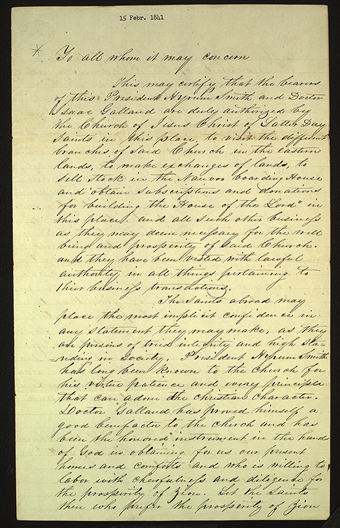 15 Febr. 1841
To all whom it may concern
This may certify, that the bearers
of this President Hyrum Smith and Doctor
Isaac Galland are duly authorized by
the Church of Jesus Christ of Latter Day
Saints in this place to visit the different
branches of said Church in the Eastern
lands, to make exchanges of lands, to
sell stock in the Nauvoo boarding House
and obtain subscriptions and donations
for building the "House of the Lord" in
this place, and all such other business
as they may deem necessary for the well
being and prosperity of said Church.
and they have been vested with lawful
authority in all things pertaining to
their business transactions.
The Saints abroad may
place the most implicit confidence in
any statement they may make, as they
are persons of tried integrity and high stan-
ding in Society. President Hyrum Smith
has long been known to the Church for
his virtue patience and every principle
that can adorn the christian character.
Doctor Galland has proved himself a
good benefactor to the church and has
been the honored instrument in the hands
of God in obtaining for us our present
homes and comforts and who is willing to
labor with cheerfulness and diligence for
the prosperity of Zion. Let the Saints
then who prefer the prosperity of Zion